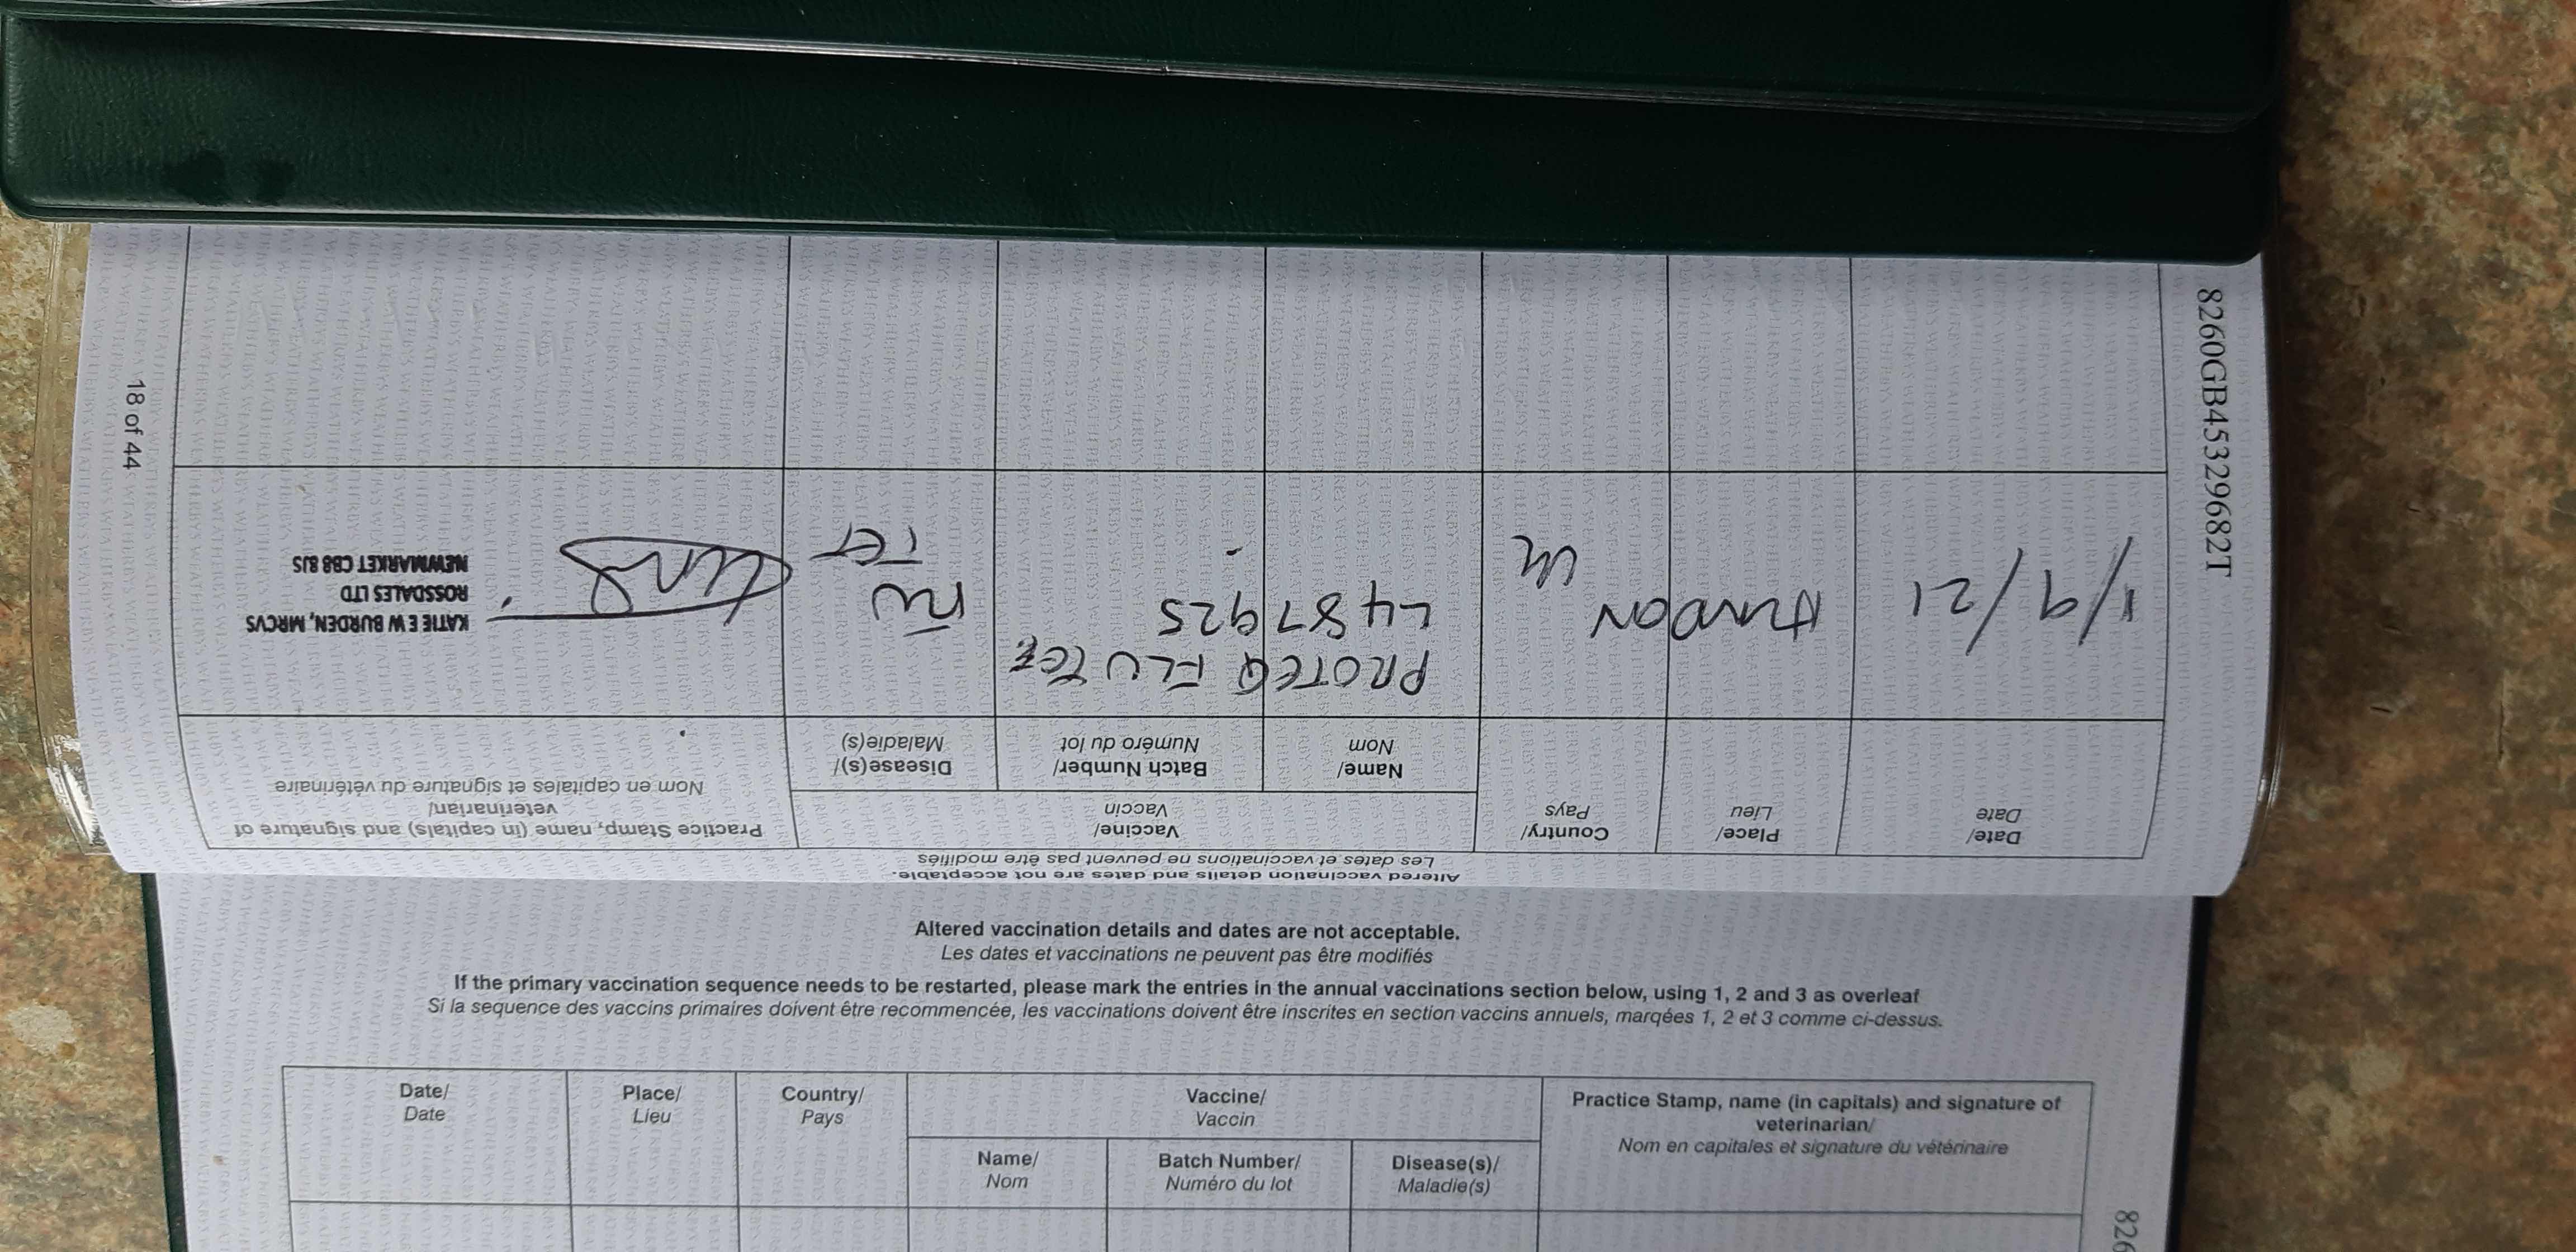 Altered vaccination details and dates are not acceptable.
Les dates et vaccinations ne peuvent pas être modifiés
Date/
Date
Place/
Lieu
Country/
Pays
Vaccine/
Vaccin
Name/
Nom
Batch Number/
Numéro du lot
Disease(s)/
Maladie(s)
Practice Stamp, name (in capitals) and signature of
veterinarian/
Nom en capitales et signature du vétérinaire
1/9/21
UK
PROTEQ FLU TE
L487925
FLU
TET
KATIE E W BURDEN, MRCVS
ROSSDALES LTD
NEWMARKET CB8 8JS
8260GB45329682T
18 of 44
Altered vaccination details and dates are not acceptable.
Les dates et vaccinations ne peuvent pas être modifiés
If the primary vaccination sequence needs to be restarted, please mark the entries in the annual vaccinations section below, using 1, 2 and 3 as overleaf
Si la sequence des vaccins primaires doivent être recommencée, les vaccinations doivent être inscrites en section vaccins annuels, marqées 1, 2 et 3 comme ci-dessus.
Date/
Date
Place/
Lieu
Country/
Pays
Vaccine/
Vaccin
Name/
Nom
Batch Number/
Numéro du lot
Disease(s)/
Maladie(s)
Practice Stamp, name (in capitals) and signature of
veterinarian/
Nom en capitales et signature du vétérinaire
826